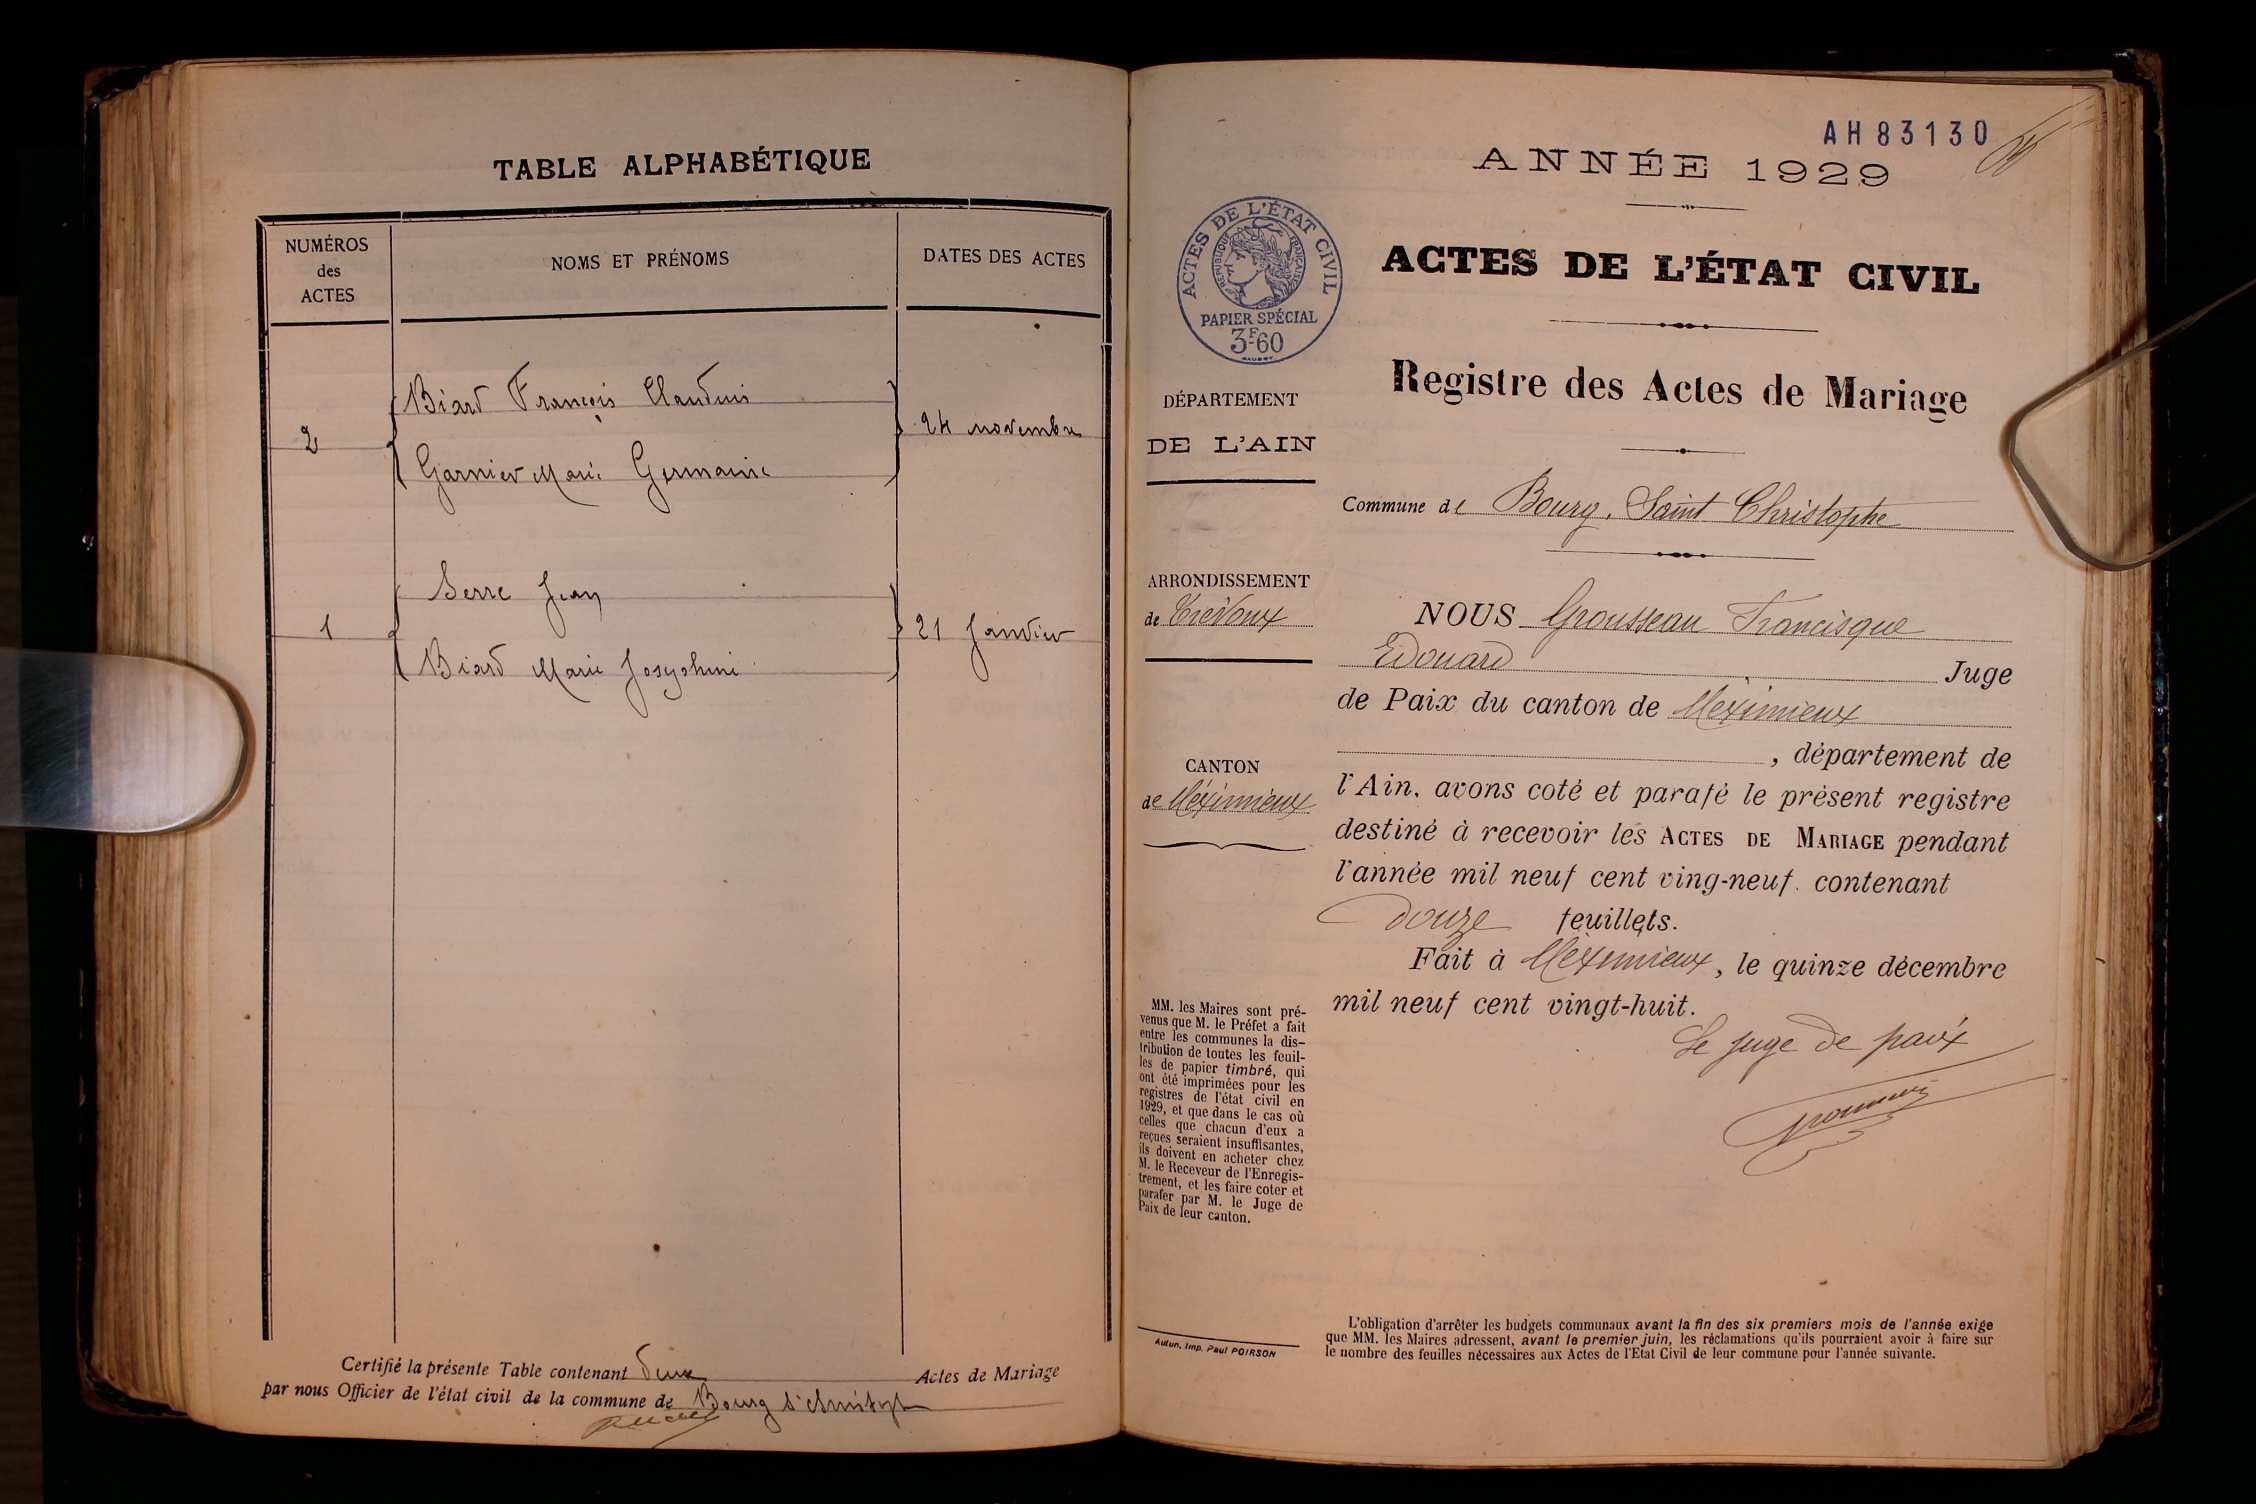 TABLE ALPHABÉTIQUE
NUMÉROS
des
ACTES
NOMS ET PRÉNOMS
DATES DES ACTES
Biard François Claudius
2
24 novembre
Garnier Marie Germaine
Serre Jean
1
21 Janvier
Biard Marie Josephine
Certifié la présente Table contenant deux Actes de Mariage
par nous Officier de l'état civil de la commune de Bourg St Christophe
AH83130
ANNÉE 1929
ACTES DE L'ÉTAT CIVIL
RÉPUBLIQUE FRANÇAISE
PAPIER SPÉCIAL
3F60
ACTES DE L'ÉTAT CIVIL
Registre des Actes de Mariage
DÉPARTEMENT
DE L'AIN
Commune de Bourg-Saint Christophe
ARRONDISSEMENT
de Trévoux
CANTON
de Méximieux
NOUS Grousseau Francisque
Edouard Juge
de Paix du canton de Méximieux
, département de
l'Ain, avons coté et parafé le présent registre
destiné à recevoir les ACTES DE MARIAGE pendant
l'année mil neuf cent ving-neuf. contenant
douze feuillets.
Fait à Méximieux, le quinze décembre
mil neuf cent vingt-huit.
Le juge de paix
MM. les Maires sont pré-
venus que M. le Préfet a fait
entre les communes la dis-
tribution de toutes les feuil-
les de papier timbré, qui
ont été imprimées pour les
registres de l'état civil en
1929, et que dans le cas où
celles que chacun d'eux a
reçues seraient insuffisantes,
ils doivent en acheter chez
M. le Receveur de l'Enregis-
trement, et les faire coter et
parafer par M. le Juge de
Paix de leur canton.
Autun, Imp. Paul POIRSON
L'obligation d'arrêter les budgets communaux avant la fin des six premiers mois de l'année exige
que MM. les Maires adressent, avant le premier juin, les réclamations qu'ils pourraient avoir à faire sur
le nombre des feuilles nécessaires aux Actes de l'Etat Civil de leur commune pour l'année suivante.